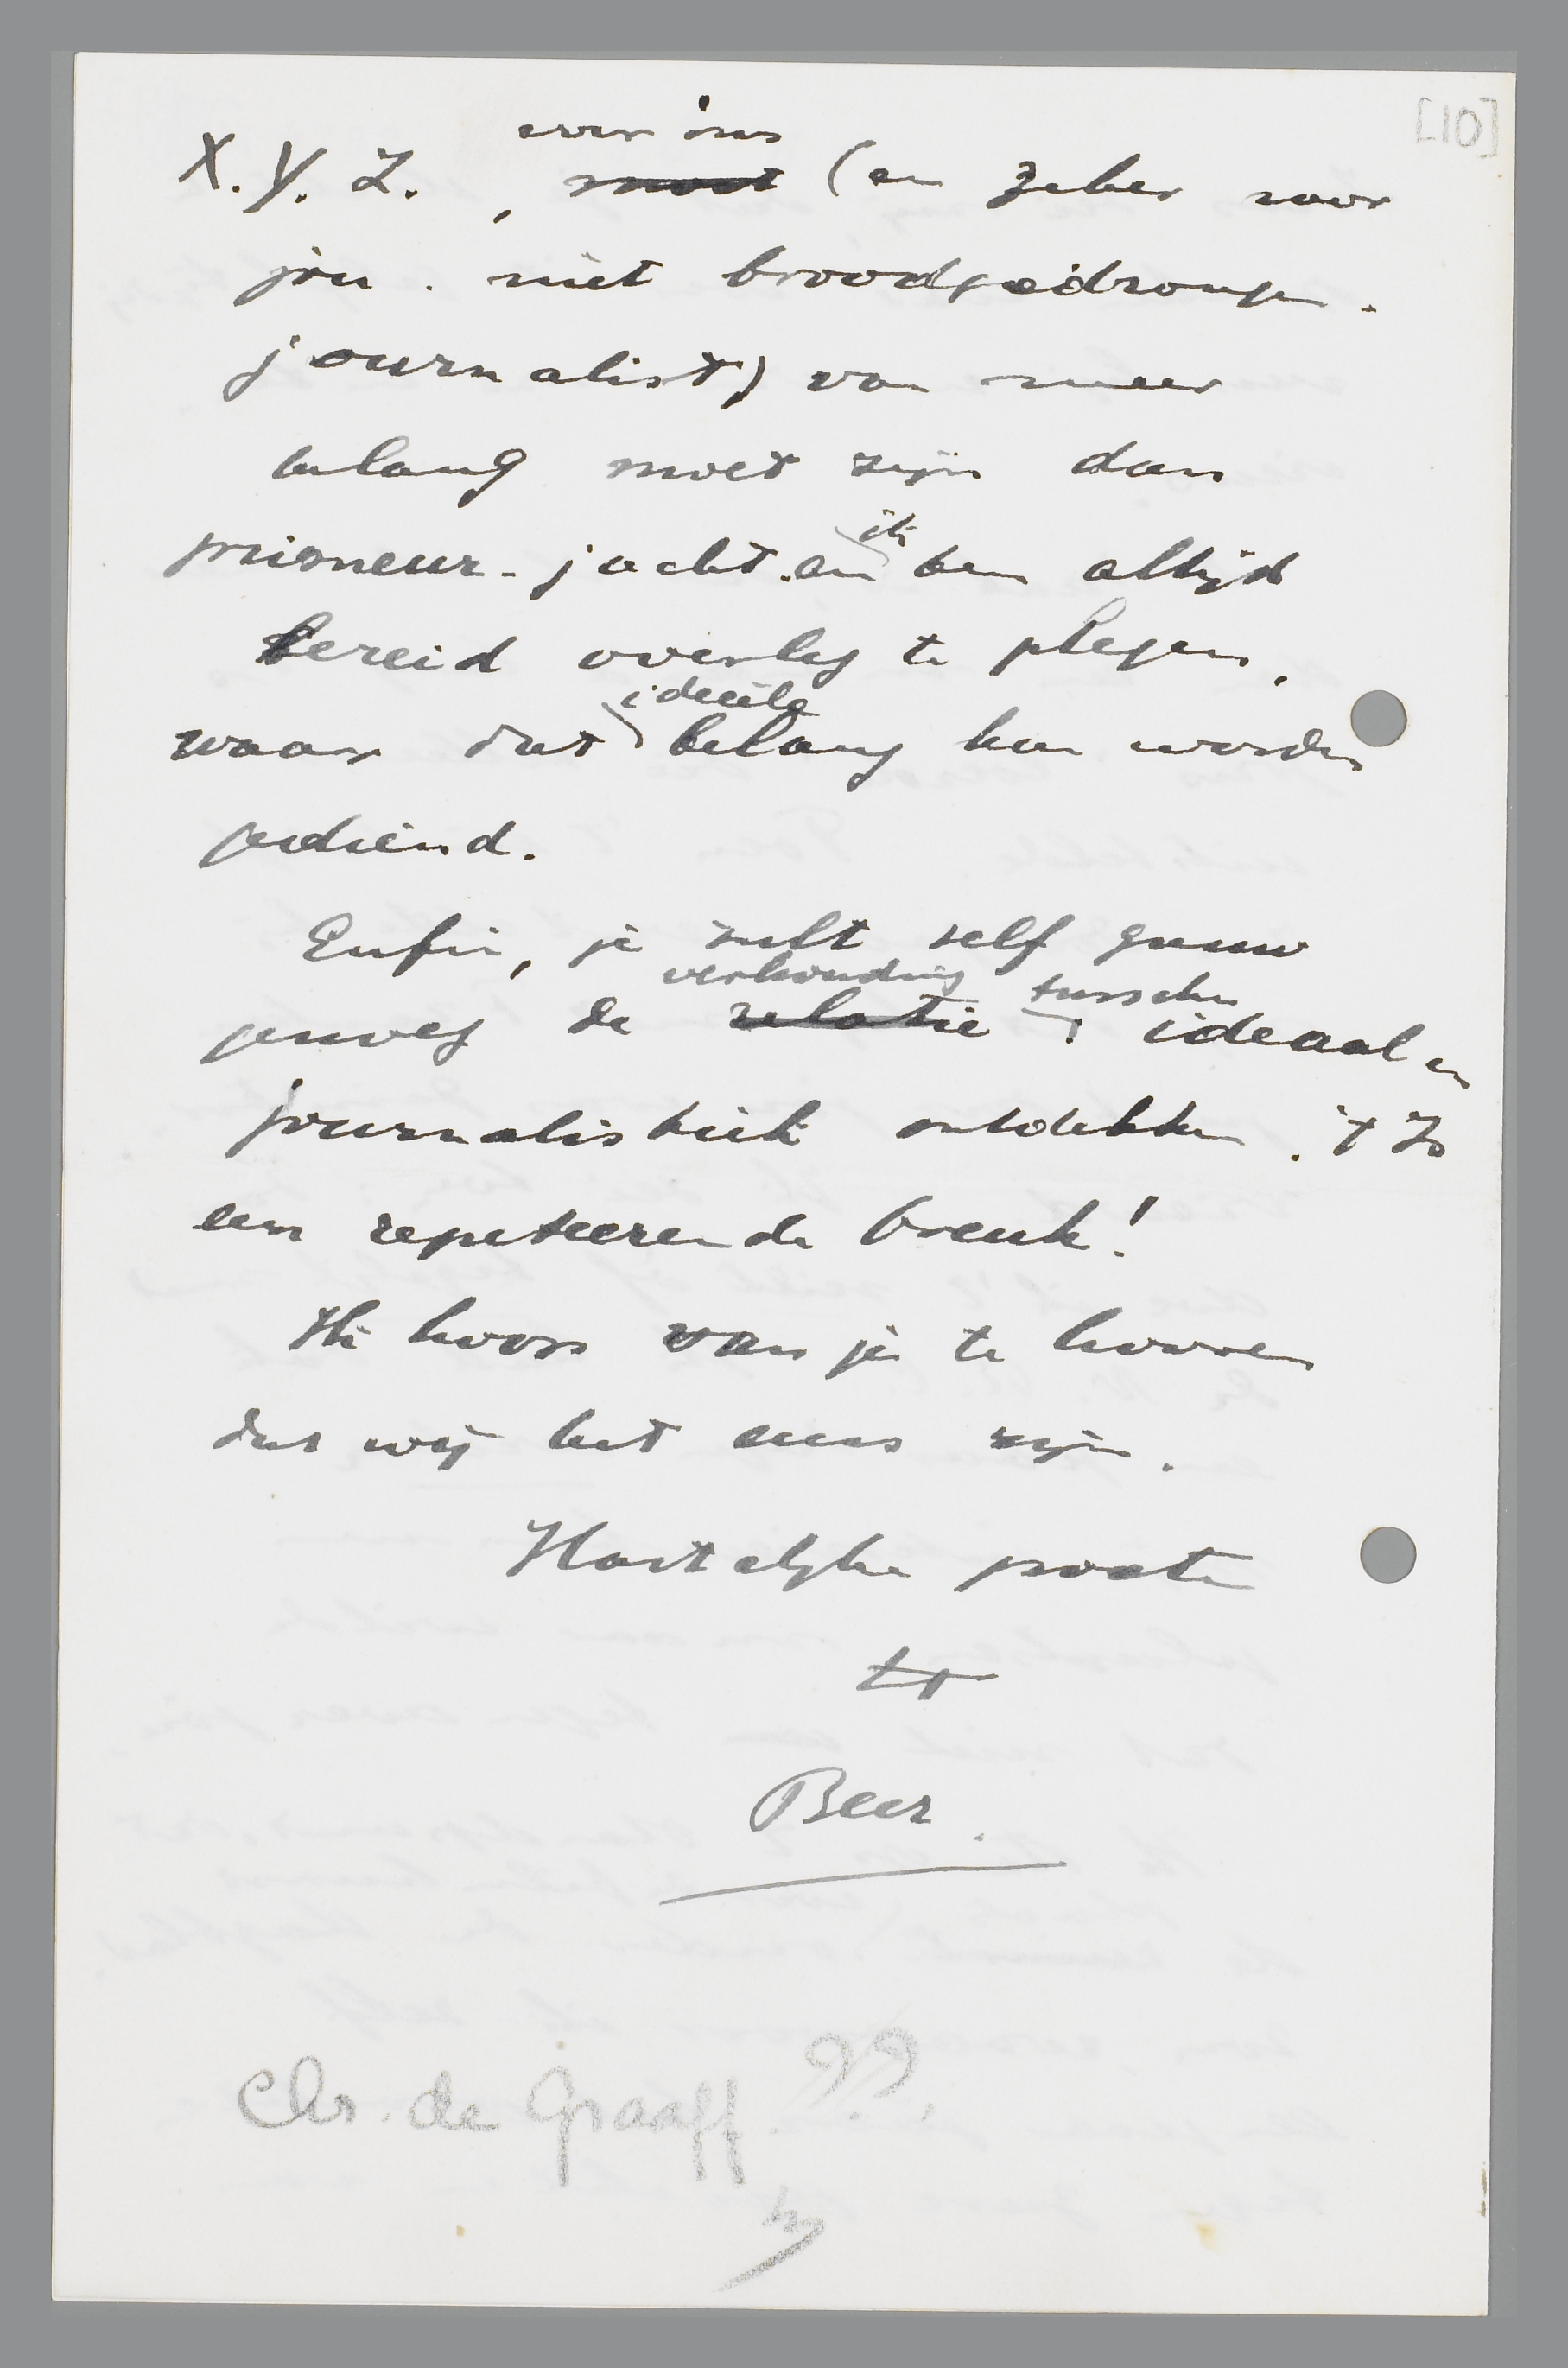 [10]
voor ons
X. Y. Z. , moet (en zeker voor
jou. niet broodgedrongen.
journalist) van meer
belang moet zijn dan
primeur-jacht. en ik ben altijd
bereid overleg te plegen,
waar dat ideëele belang kan worden
gediend.
Enfin, je zult zelf gauw
genoeg de relatie verhouding tusschen ideaal en
journalistiek ontdekken. 't Is
een repeteerende breuk!
Ik hoop van je te hooren
dat wij het eens zijn.
Hartelijke groeten
tt
Beer.
Chr. de Graaff ??.